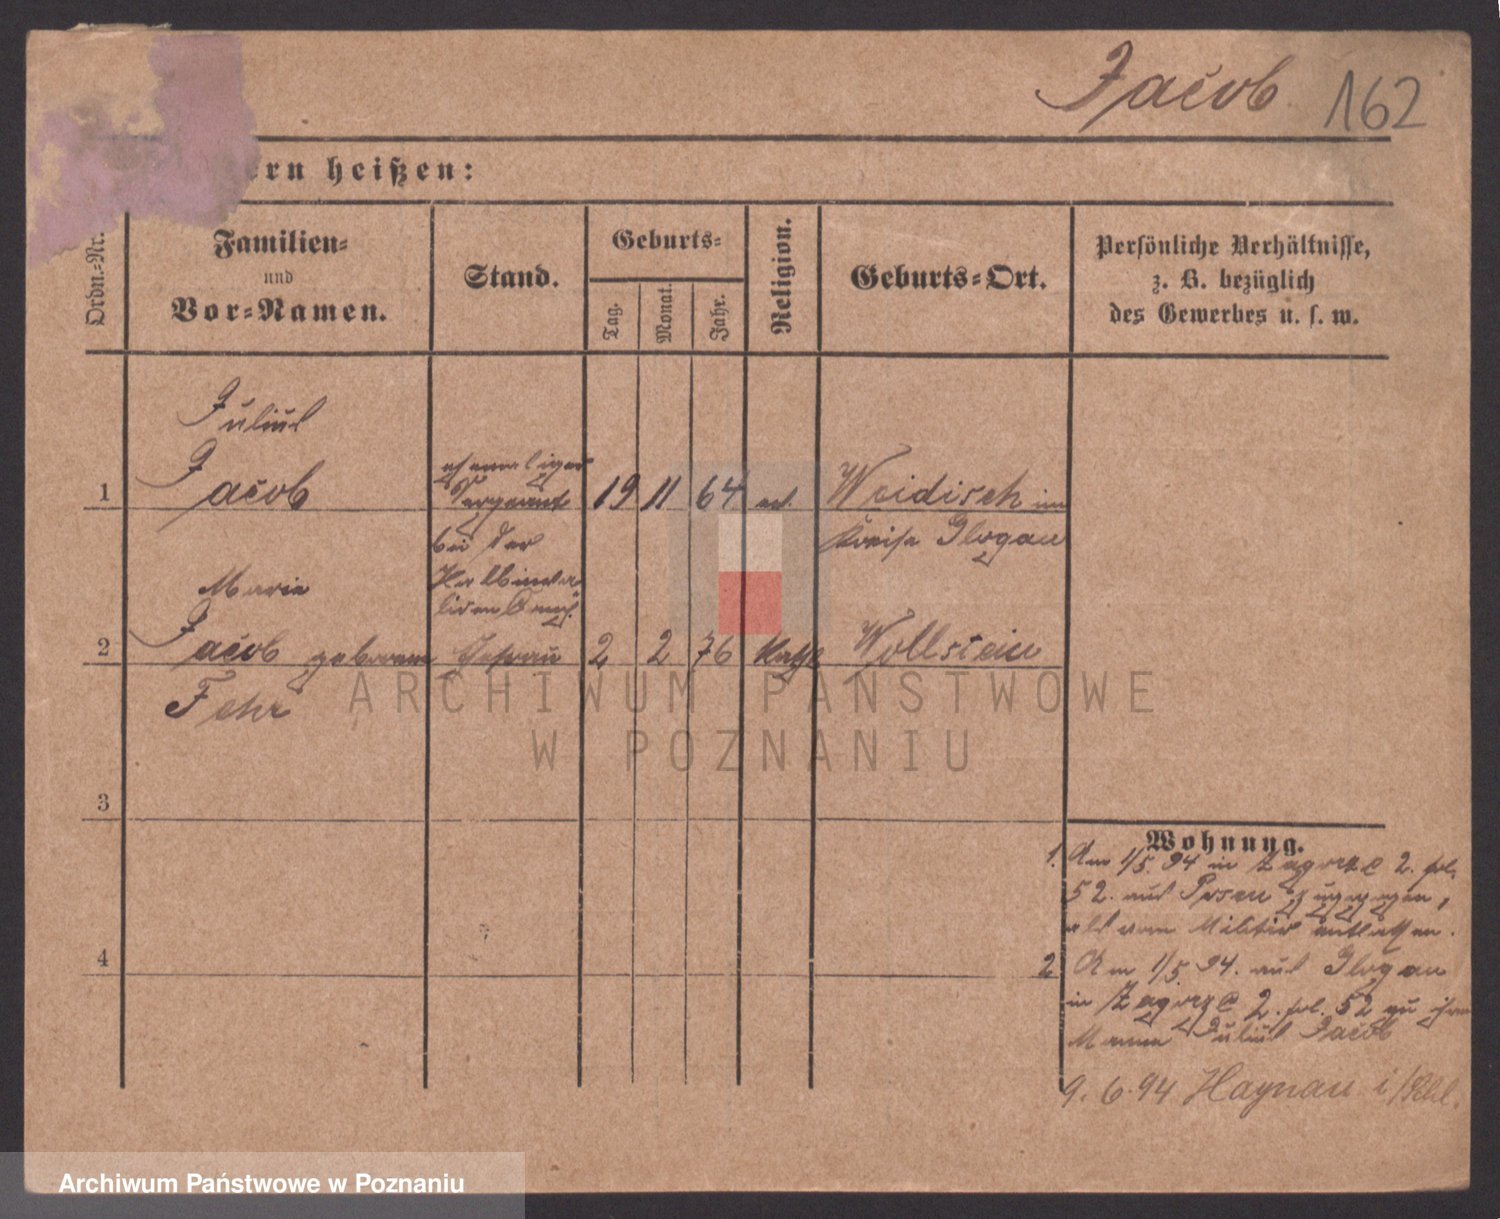 Jacob 162
ern heißen:
Ordn.-Nr.
Familien-
und
Vor-Namen.
Stand.
Geburts-
Tag.
Monat.
Jahr.
Religion.
Geburts-Ort.
Persönliche Verhältnisse,
z. B. bezüglich
des Gewerbes u. s. w.
Julius
1 Jacob
ehemaliger
Sergeant
bei der
Halbinva-
liden
19 11 64 ev.
Weidisch im
Kreise Glogau
Marie
2 Jacob geborene
Fehr
Ehefrau 2 2 76 kath
Wollstein
3
4
Wohnung.
1. Am 1/5. 94 in Zagorze 2. fol.
52. aus Posen zugezogen,
als vom Militär entlassen.
2 Am 1/5. 94. aus Glogau
in Zagorze 2. fol. 52 zu ihrem
Mann Julius Jacob
9. 6. 94 Haynau i/Schl.
ARCHIWUM PAŃSTWOWE
W POZNANIU
Archiwum Państwowe w Poznaniu